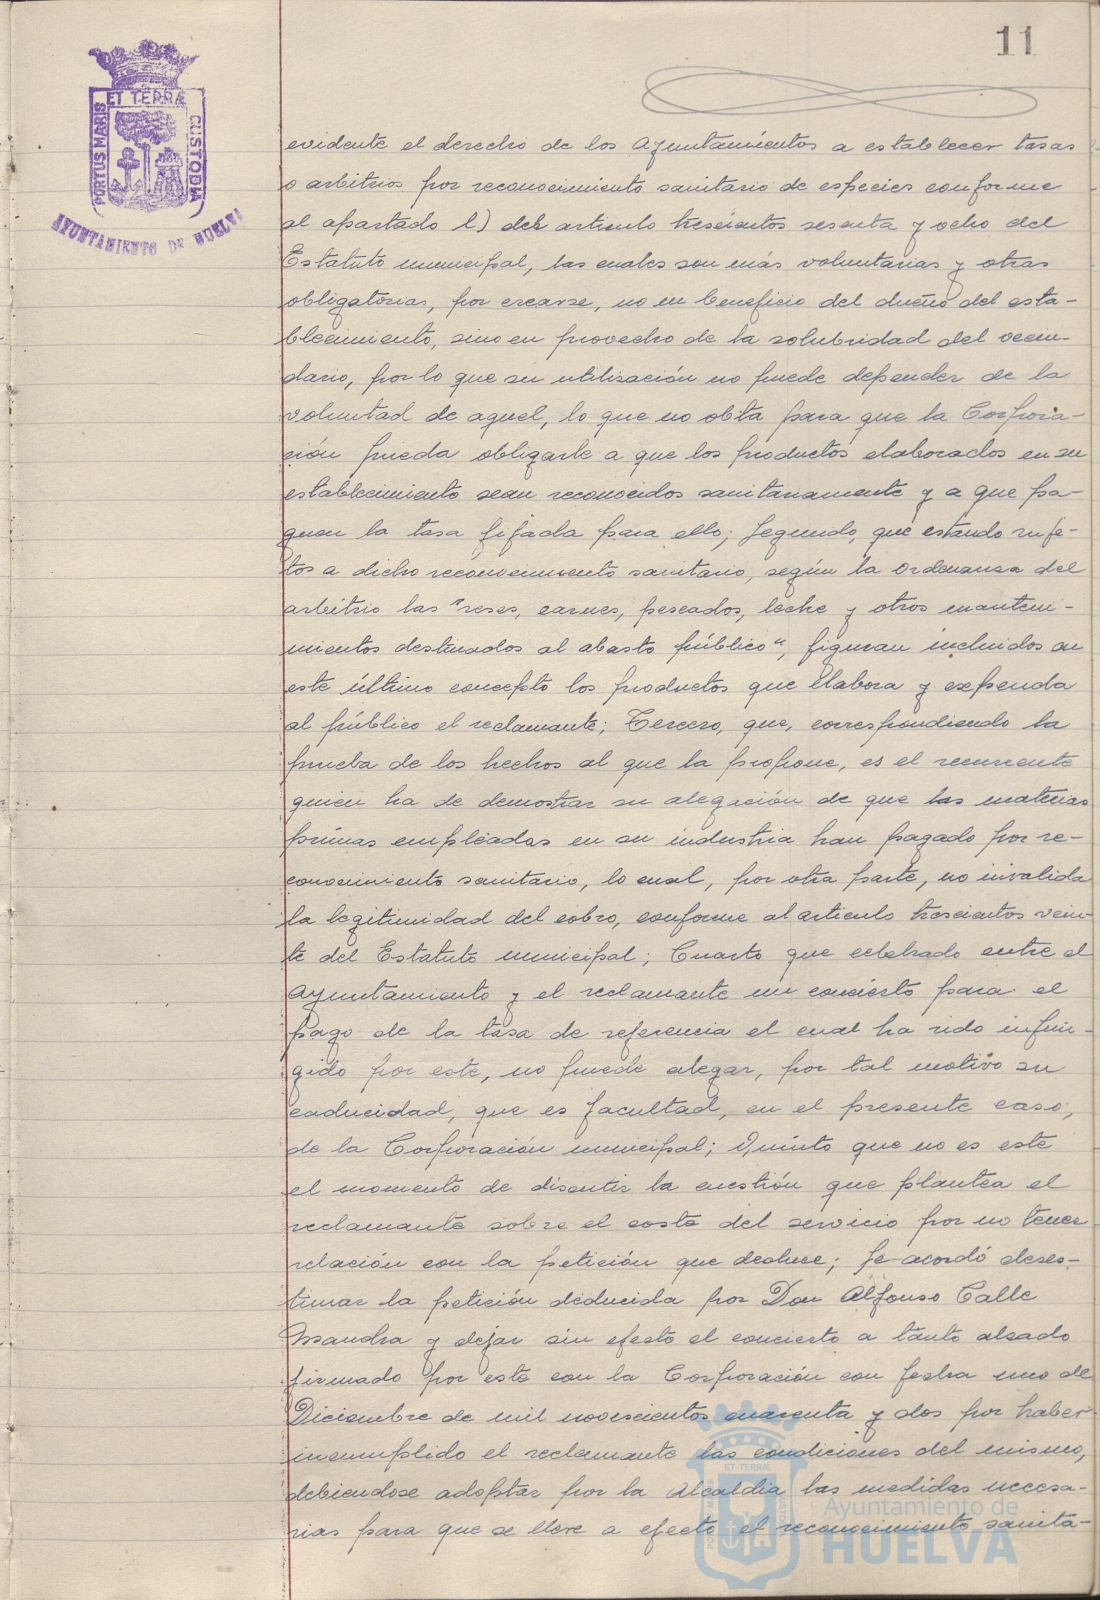 11
ET TERRÆ
PORTUS MARIS
CUSTODIA
AYUNTAMIENTO DE HUELVA
evidente el derecho de los Ayuntamientos a establecer tasas
o arbitrios por reconocimiento sanitario de especies conforme
al apartado l) del articulo trescientos sesenta y ocho del
Estatuto municipal, las cuales son más voluntarias y otras
obligatorias, por crearse, no en beneficio del dueño del esta-
blecimiento, sino en provecho de la solubridad del vecin-
dario, por lo que su utilización no puede depender de la
voluntad de aquel, lo que no obsta para que la Corpora-
ción pueda obligarle a que los productos elaborados en su
establecimiento sean reconocidos sanitariamente y a que pa-
guen la tasa fijada para ello; Segundo, que estando suje-
tos a dicho reconocimiento sanitario, según la Ordenanza del
arbitrio las "reses, carnes, pescados, leche y otros manteni-
mientos destinados al abasto público", figuran incluidos en
este último concepto los productos que elabora y expenda
al público el reclamante; Tercero, que, correspondiendo la
prueba de los hechos al que la propone, es el recurrente
quien ha de demostrar su alegación de que las materias
primas empleadas en su industria han pagado por re-
conocimiento sanitario, lo cual, por otra parte, no invalida
la legitimidad del cobro, conforme al articulo trescientos vein-
te del Estatuto municipal; Cuarto que celebrado entre el
Ayuntamiento y el reclamante un concierto para el
pago de la tasa de referencia el cual ha sido infrin-
gido por este, no puede alegar, por tal motivo su
caducidad, que es facultad, en el presente caso,
de la Corporación municipal; Quinto que no es este
el momento de discutir la cuestión que plantea el
reclamante sobre el coste del servicio por no tener
relación con la petición que deduce; Se acordó deses-
timar la petición deducida por Don Alfonso Calle
Mandra y dejar sin efecto el concierto a tanto alzado
firmado por este con la Corporación con fecha uno de
Diciembre de mil novescientos cuarenta y dos por haber
incumplido el reclamante las condiciones del mismo,
debiendose adoptar por la Alcaldia las medidas necesa-
rias para que se lleve a efecto el reconocimiento sanita-
Ayuntamiento de
HUELVA